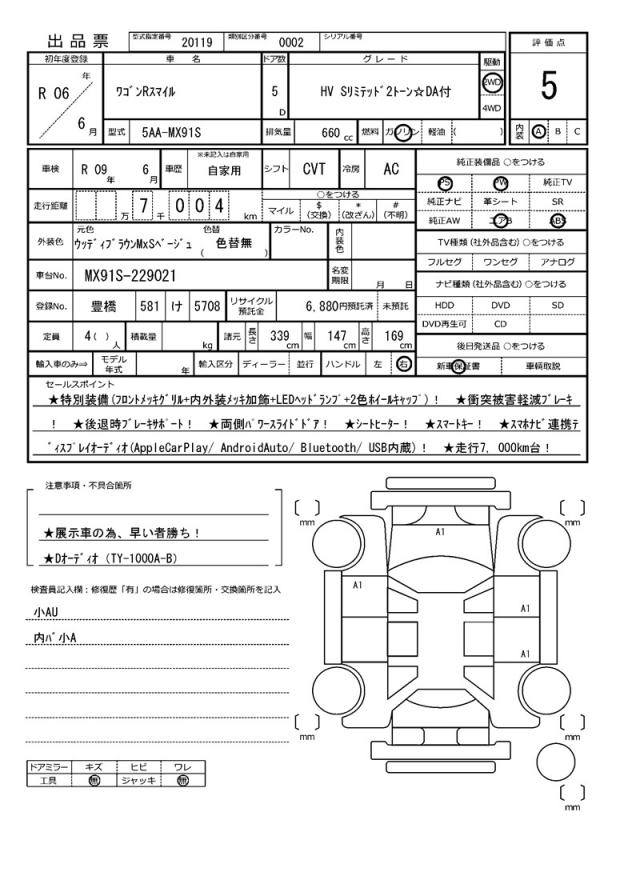 出品票 型式指定番号 20119 類別区分番号 0002 シリアル番号
評価点
5
内装 A B C
初年度登録 車名 ドア数 グレード 駆動
R 06 年 6 月
ワゴンRスマイル 5 D HV Sリミテッド2トーン☆DA付 2WD 4WD
型式 5AA-MX91S 排気量 660 cc 燃料 ガソリン 軽油 ( )
車検 R 09 年 6 月 車歴 ※未記入は自家用 自家用 シフト CVT 冷房 AC
走行距離 万 7 千 0 0 4 km
○をつける
マイル $ (交換) * (改ざん) # (不明)
外装色 元色 ウッディブラウンMxSベージュ 色替 ( 色替無 ) カラーNo. 内装色
車台No. MX91S-229021 名変期限 月 日
登録No. 豊橋 581 け 5708 リサイクル預託金 6,880円預託済 未預託
定員 4( ) 人 積載量 kg 諸元 長さ 339 cm 幅 147 cm 高さ 169 cm
輸入車のみ⇒ モデル年式 年 輸入区分 ディーラー 並行 ハンドル 左 右
純正装備品 ○をつける
PS PW 純正TV
純正ナビ 革シート SR
純正AW エアB ABS
TV種類 (社外品含む) ○をつける
フルセグ ワンセグ アナログ
ナビ種類 (社外品含む) ○をつける
HDD DVD SD
DVD再生可 CD
後日発送品 ○をつける
新車保証書 車輌取説
セールスポイント
★特別装備(フロントメッキグリル+内外装メッキ加飾+LEDヘッドランプ+2色ホイールキャップ)! ★衝突被害軽減ブレーキ
! ★後退時ブレーキサポート! ★両側パワースライドドア! ★シートヒーター! ★スマートキー! ★スマホナビ連携デ
ィスプレイオーディオ(AppleCarPlay/ AndroidAuto/ Bluetooth/ USB内蔵)! ★走行7,000km台!
注意事項・不具合箇所
★展示車の為、早い者勝ち!
★Dオーディオ (TY-1000A-B)
検査員記入欄：修復歴「有」の場合は修復箇所・交換箇所を記入
小AU
内バ小A
ドアミラー キズ ヒビ ワレ
工具 無 ジャッキ 無
[ ] mm
[ ] mm
A1
A1
A1
A1
[ ] mm
[ ] mm
[ ] mm